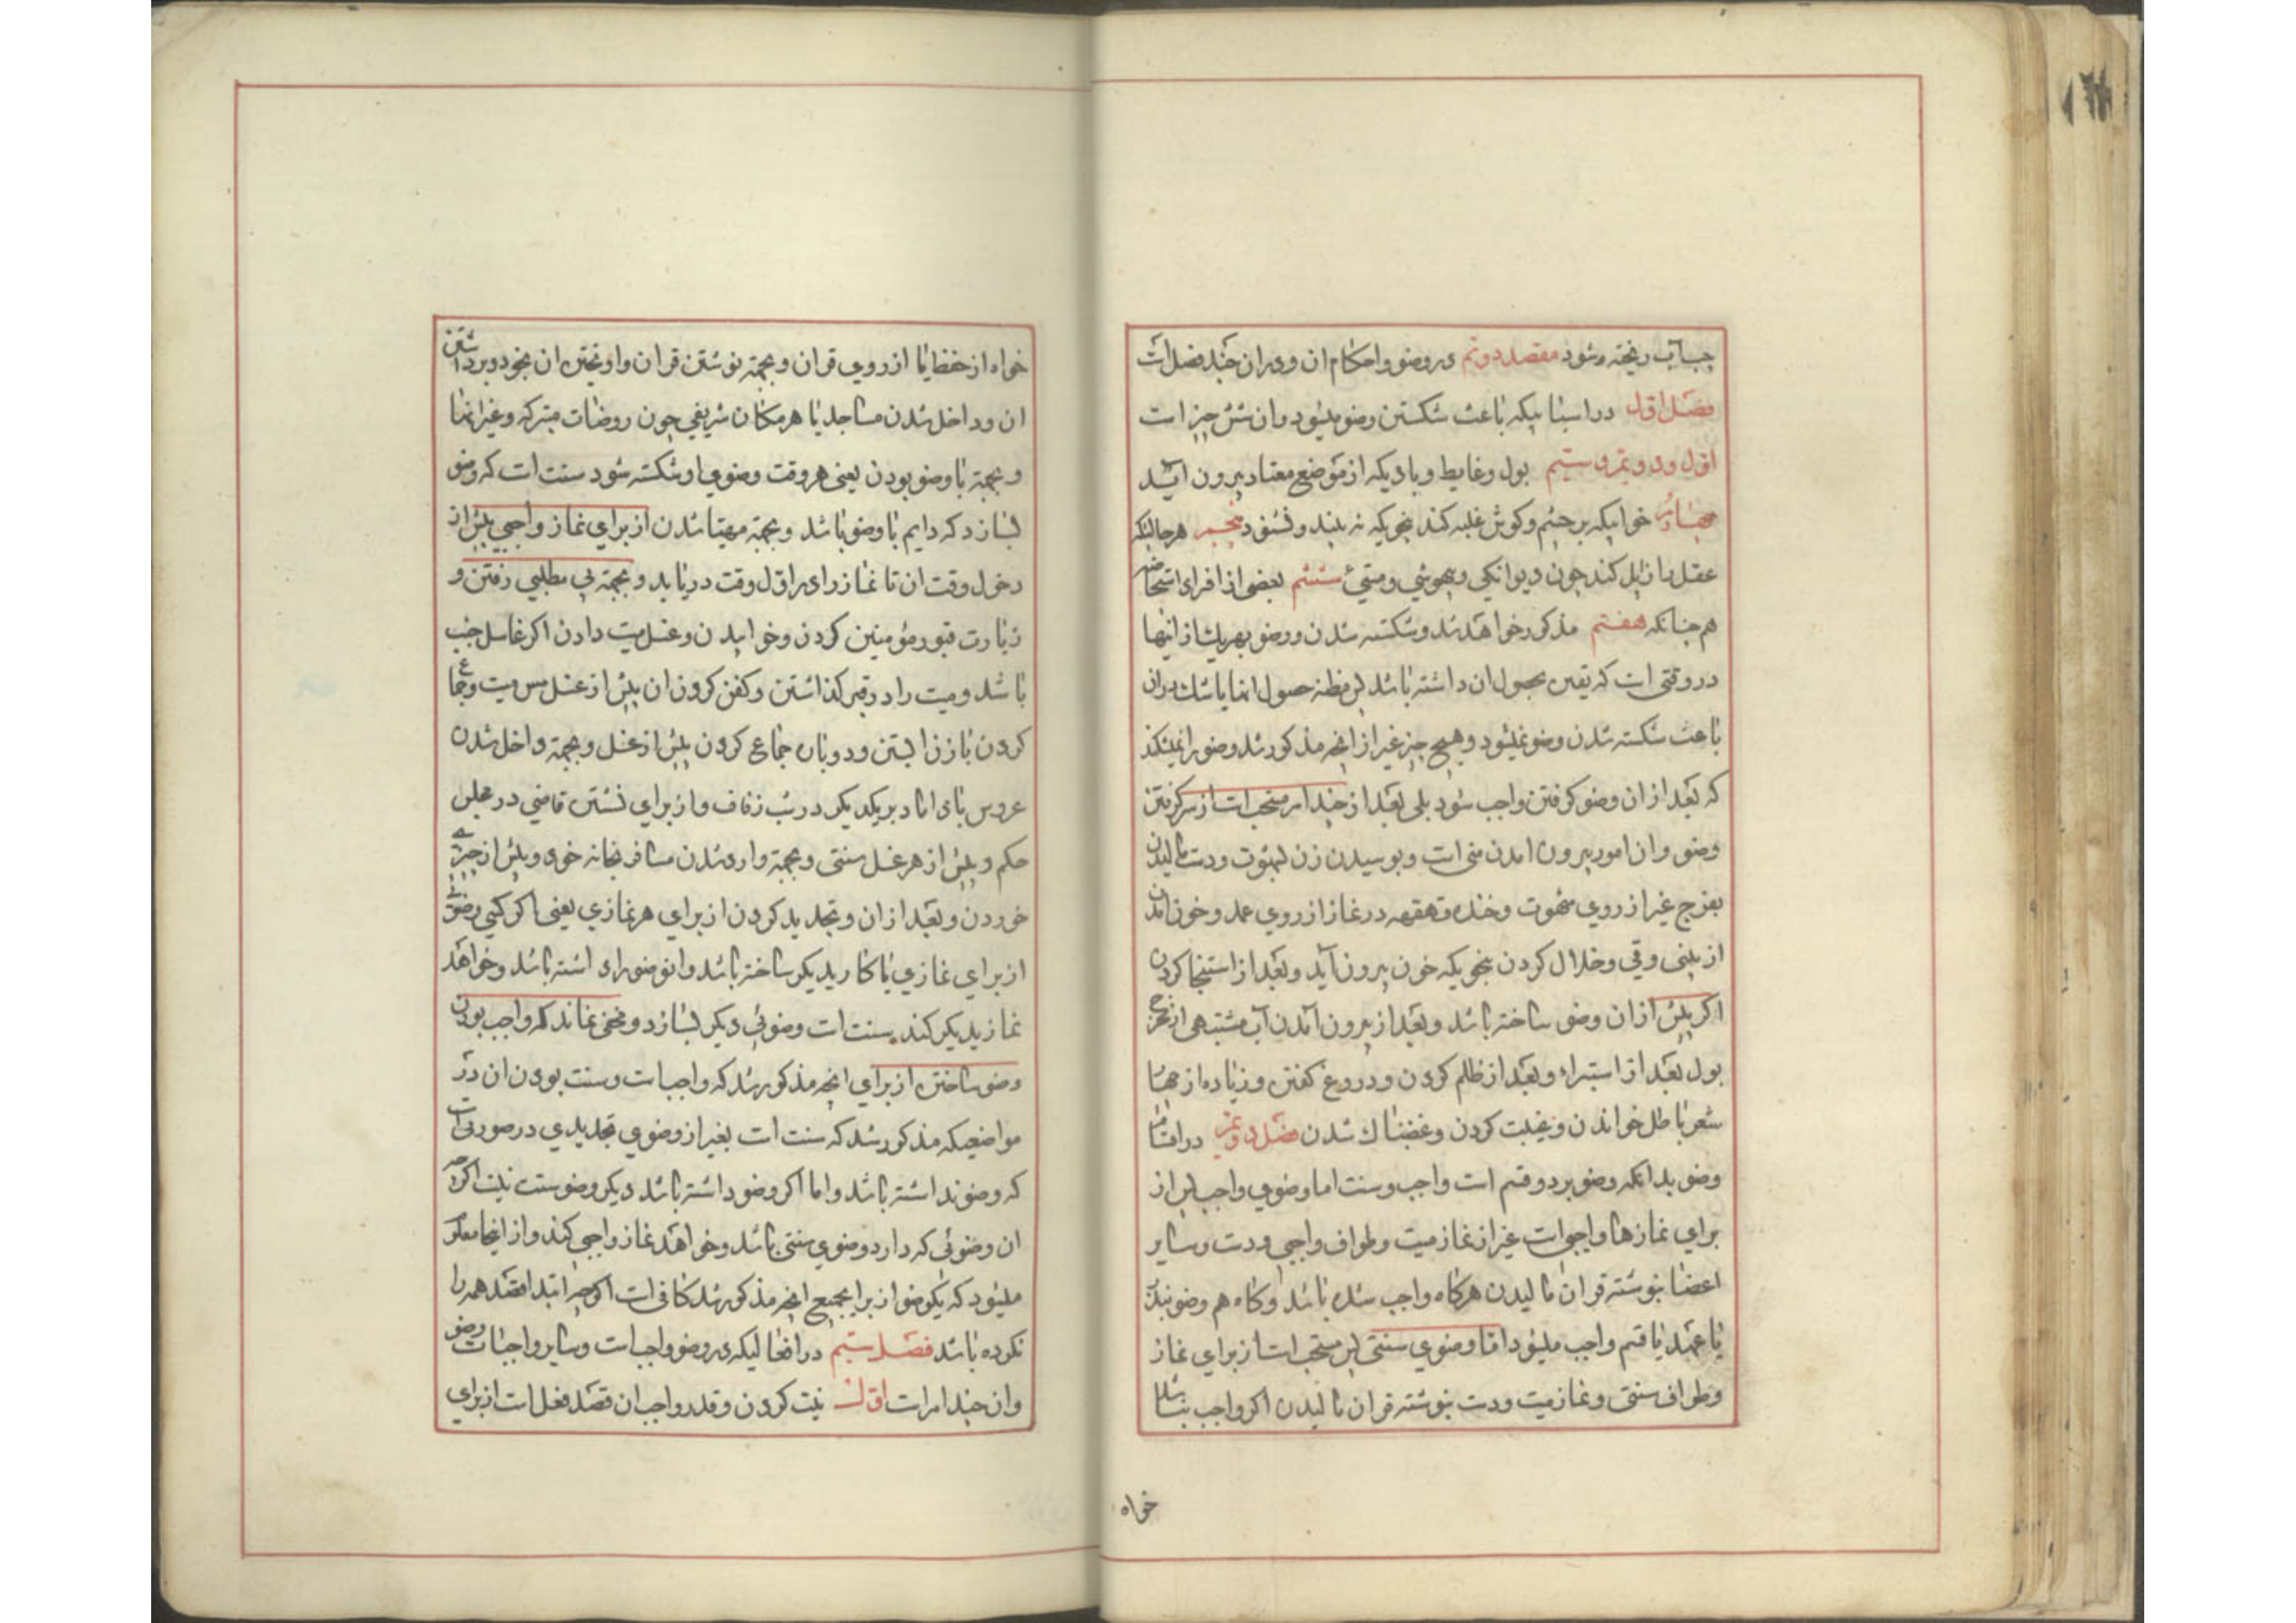 جب آب ریخته شود مقصد دوم در وضو و احکام ان و در ان چند فصل است
فصل اول در اسبابیکه باعث شکستن وضو میشود وان شش چیز است
اول و دویم و سیم بول و غایط و بادیکه از موضع معتاد بیرون آید
چهارم خوابیکه بر چشم و کوش غلبه کند بنحویکه نه بیند و نشنود پنجم هر حالتیکه
عقل را زایل کند چون دیوانکی و بیهوشی و مستی ششم بعضی از افراد استحاضه
هم چنانکه هفتم مذکور خواهد شد و شکسته شدن وضو بهر یک از اینها
در وقتی است که یقین بحصول ان داشته باشد پس مظنه حصول انها یا شک دران
باعث شکسته شدن وضو نمیشود و هیچ چیز غیر از انچه مذکور شد وضو را نمیشکند
که بعد از ان وضو کرفتن واجب شود بلی بعد از چند امر مستحب است از سر کرفتن
وضو وان امور بیرون امدن مذی است و بوسیدن زن بشهوت و دست مالیدن
بفرج غیر از روی شهوت و خنده قهقهه در نماز از روی عمد و خون امدن
از بینی و قی و خلال کردن بنحویکه خون بیرون آید و بعد از استنجا کردن
اکر پیش از ان وضو ساخته باشد و بعد از بیرون آمدن آب مشتبهی از مخرج
بول بعد از استبراء و بعد از ظلم کردن و دروغ کفتن و زیاده از چهار
شعر باطل خواندن و غیبت کردن و غضبناک شدن فصل دویم در اقسام
وضو بدانکه وضو بر دو قسم است واجب و سنت اما وضوی واجب پس از
برای نمازهای واجبی است غیر از نماز میت و طواف واجبی و دست و سایر
اعضا بنوشته قران مالیدن هرکاه واجب شده باشد و کاه هم وضو بنذر
یا عهد یا قسم واجب میشود اما وضوی سنتی پس مستحب است از برای نماز
وطواف سنتی و نماز میت و دست بنوشته قران مالیدن اکر واجب نباشد
خواه
خواه از حفظ یا از روی قران و بجهة نوشتن قران و اویختن ان بخود و برداشتن
ان و داخل شدن مساجد یا هر مکان شریفی چون روضات متبرکه و غیر انها
و بجهة با وضو بودن یعنی هر وقت وضوی او شکسته شود سنت است که وضو
بسازد که دایم با وضو باشد و بجهة مهیا شدن از برای نماز واجبی پیش از
دخول وقت ان تا نماز را در اول وقت دریابد و بجهة پی مطلبی رفتن و
زیارت قبور مؤمنین کردن و خوابیدن و غسل میت دادن اکر غاسل جنب
باشد و میت را در قبر کذاشتن و کفن کردن ان پیش از غسل مس میت و جماع
کردن با زن ابستن و دوباره جماع کردن پیش از غسل و بجهة داخل شدن
عروس با داماد بر یکدیکر در شب زفاف و از برای نشستن قاضی در مجلس
حکم و پیش از هر غسل سنتی و بجهة وارد شدن مسافر بخانه خود و پیش از چیزی
خوردن و بعد از ان و تجدید کردن از برای هر نمازی یعنی اکر کسی وضوئی
از برای نمازی یا کار دیکر ساخته باشد و انوضو را داشته باشد و خواهد
نماز دیکر کند سنت است وضوئی دیکر بسازد و مخفی نماند که واجب بودن
وضو ساختن از برای انچه مذکور شد که واجب است و سنت بودن ان در
مواضعیکه مذکور شد که سنت است بغیر از وضوی تجدیدی در صورتی است
که وضو نداشته باشد و اما اکر وضو داشته باشد دیکر وضو سنت نیست اکرچه
ان وضوئی که دارد وضوی سنتی باشد و خواهد نماز واجبی کند و از اینجا معلوم
میشود که یکوضو از برای جمیع انچه مذکور شد کافی است اکرچه ابتدا قصد همه را
نکرده باشد فصل سیم در افعالیکه در وضو واجب است و سایر واجبات وضو
وان چند امر است اول نیت کردن و قدر واجب ان قصد فعل است از برای